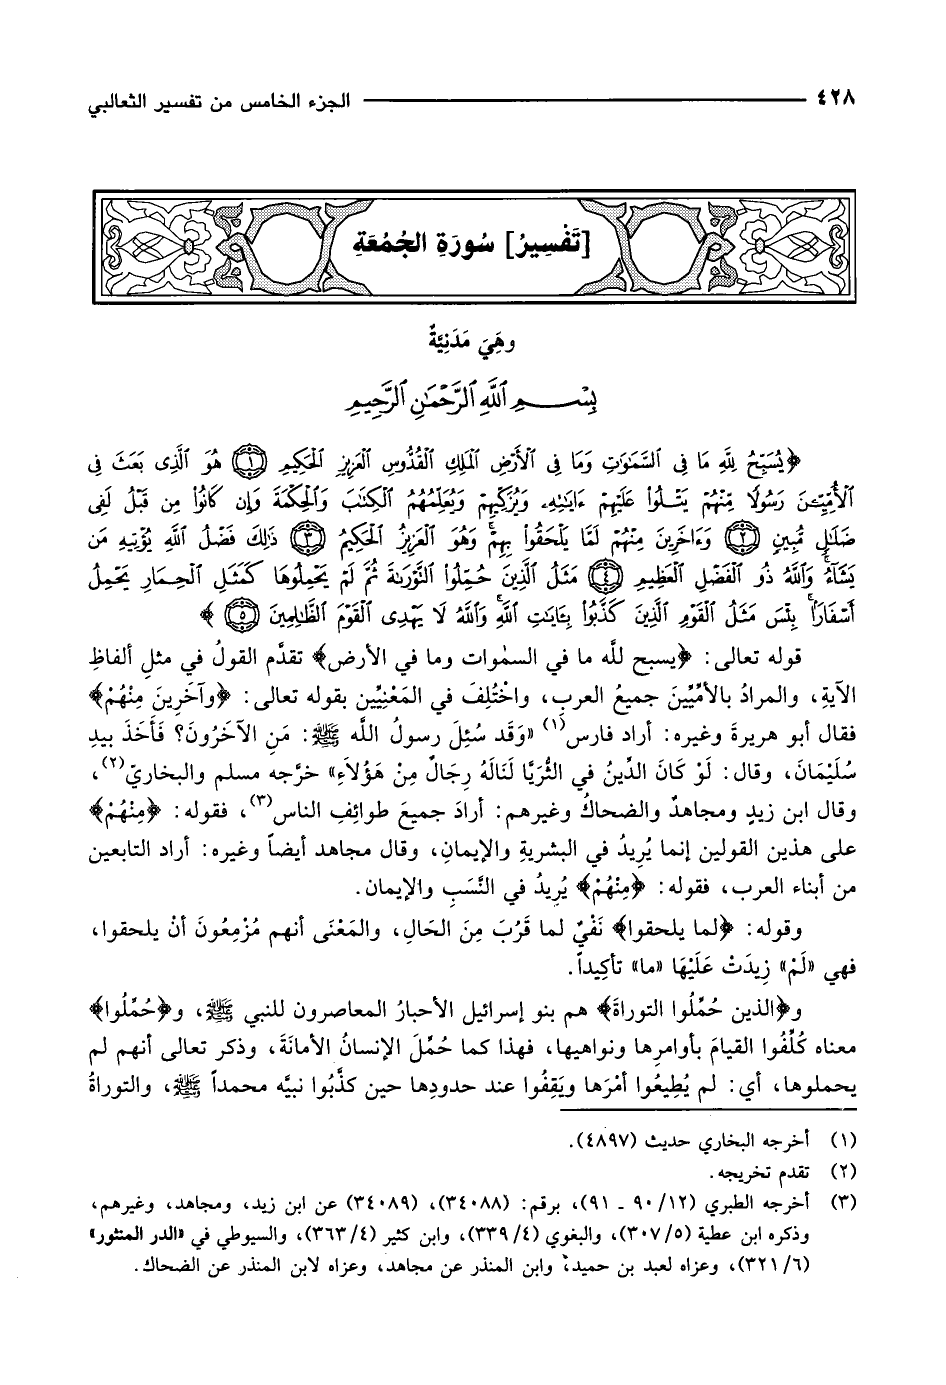 ٤٢٨ الجزء الخامس من تفسير الثعالبي
[تَفْسِيرُ] سُورَةِ الجُمُعَةِ
وهِيَ مَدَنِيَّةٌ
بِسْمِ ٱللَّهِ ٱلرَّحْمَٰنِ ٱلرَّحِيمِ
﴿يُسَبِّحُ لِلَّهِ مَا فِى ٱلسَّمَٰوَٰتِ وَمَا فِى ٱلْأَرْضِ ٱلْمَلِكِ ٱلْقُدُّوسِ ٱلْعَزِيزِ ٱلْحَكِيمِ ۝١ هُوَ ٱلَّذِى بَعَثَ فِى
ٱلْأُمِّيِّـۧنَ رَسُولًا مِّنْهُمْ يَتْلُوا۟ عَلَيْهِمْ ءَايَٰتِهِۦ وَيُزَكِّيهِمْ وَيُعَلِّمُهُمُ ٱلْكِتَٰبَ وَٱلْحِكْمَةَ وَإِن كَانُوا۟ مِن قَبْلُ لَفِى
ضَلَٰلٍ مُّبِينٍ ۝٢ وَءَاخَرِينَ مِنْهُمْ لَمَّا يَلْحَقُوا۟ بِهِمْ ۚ وَهُوَ ٱلْعَزِيزُ ٱلْحَكِيمُ ۝٣ ذَٰلِكَ فَضْلُ ٱللَّهِ يُؤْتِيهِ مَن
يَشَآءُ ۚ وَٱللَّهُ ذُو ٱلْفَضْلِ ٱلْعَظِيمِ ۝٤ مَثَلُ ٱلَّذِينَ حُمِّلُوا۟ ٱلتَّوْرَىٰةَ ثُمَّ لَمْ يَحْمِلُوهَا كَمَثَلِ ٱلْحِمَارِ يَحْمِلُ
أَسْفَارًا ۚ بِئْسَ مَثَلُ ٱلْقَوْمِ ٱلَّذِينَ كَذَّبُوا۟ بِـَٔايَٰتِ ٱللَّهِ ۚ وَٱللَّهُ لَا يَهْدِى ٱلْقَوْمَ ٱلظَّٰلِمِينَ ۝٥﴾
قوله تعالى: ﴿يسبح للَّه ما في السمٰوات وما في الأرض﴾ تقدَّم القولُ في مثلِ ألفاظِ
الآيةِ، والمرادُ بالأمِّيِّينَ جميعُ العربِ، واخْتُلِفَ في المَعْنِيِّين بقوله تعالى: ﴿وآخَرِينَ مِنْهُمْ﴾
فقال أبو هريرةَ وغيره: أراد فارس(١) «وَقَد سُئِلَ رسولُ اللَّه ﷺ: مَنِ الآخَرُونَ؟ فَأَخَذَ بيدِ
سُلَيْمَانَ، وقال: لَوْ كَانَ الدِّينُ في الثُّرَيَّا لَنَالَهُ رِجَالٌ مِنْ هَؤُلاَءِ» خرَّجه مسلم والبخاريّ(٢)،
وقال ابن زيدٍ ومجاهدٌ والضحاكُ وغيرهم: أرادَ جميعَ طوائِفِ الناس(٣)، فقوله: ﴿مِنْهُمْ﴾
على هذين القولين إنما يُرِيدُ في البشريةِ والإيمانِ، وقال مجاهد أيضاً وغيره: أراد التابعين
من أبناء العرب، فقوله: ﴿مِنْهُمْ﴾ يُرِيدُ في النَّسَبِ والإيمان.
وقوله: ﴿لما يلحقوا﴾ نَفْيٌ لما قَرُبَ مِنَ الحَالِ، والمَعْنَى أنهم مُزْمِعُونَ أنْ يلحقوا،
فهي «لَمْ» زِيدَتْ عَلَيْهَا «ما» تأكِيداً.
و﴿الذين حُمِّلُوا التوراةَ﴾ هم بنو إسرائيل الأحبارُ المعاصرون للنبي ﷺ، و﴿حُمِّلُوا﴾
معناه كُلِّفُوا القيامَ بأوامرِها ونواهيها، فهذا كما حُمِّلَ الإنسانُ الأمانَةَ، وذكر تعالى أنهم لم
يحملوها، أي: لم يُطِيعُوا أمْرَها ويَقِفُوا عند حدودِها حين كذَّبُوا نبيَّه محمداً ﷺ، والتوراةُ
(١) أخرجه البخاري حديث (٤٨٩٧).
(٢) تقدم تخريجه.
(٣) أخرجه الطبري (١٢/ ٩٠ ـ ٩١)، برقم: (٣٤٠٨٨)، (٣٤٠٨٩) عن ابن زيد، ومجاهد، وغيرهم،
وذكره ابن عطية (٥/ ٣٠٧)، والبغوي (٤/ ٣٣٩)، وابن كثير (٤/ ٣٦٣)، والسيوطي في «الدر المنثور»
(٦/ ٣٢١)، وعزاه لعبد بن حميد، وابن المنذر عن مجاهد، وعزاه لابن المنذر عن الضحاك.